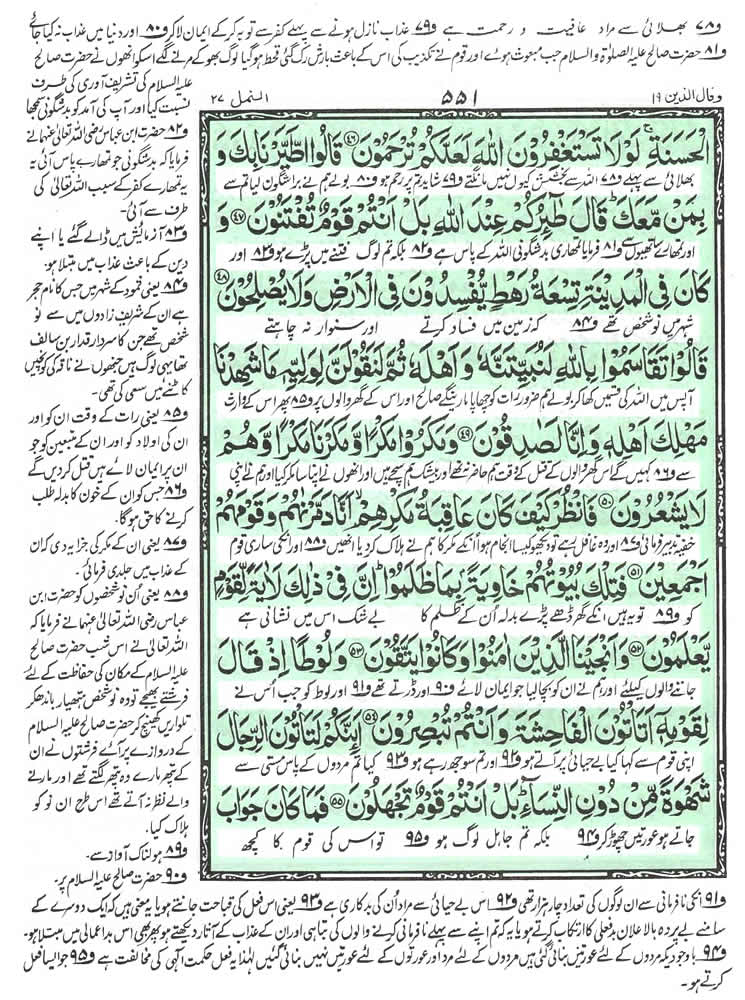 و۷۸ بھلائی سے مراد عافیت و رحمت ہے و۷۹ عذاب نازل ہونے سے پہلے کفر سے توبہ کرکے ایمان لا کر و۸۰ اور دنیا میں عذاب نہ کیا جائے
و۸۱ حضرت صالح علیہ الصلوٰۃ والسلام جب مبعوث ہوئے اور قوم نے تکذیب کی اس کے باعث بارش رک گئی قحط ہوگیا لوگ بھوکے مرنے لگے اسکو انھوں نے حضرت صالح
علیہ السلام کی تشریف آوری کی طرف
نسبت کیا اور آپ کی آمد کو بدشگونی سمجھا
و۸۲ حضرت ابن عباس رضی اللہ تعالیٰ عنہما نے
فرمایا کہ بدشگونی جو تمھارے پاس آئی یہ
تمھارے کفر کے سبب اللہ تعالیٰ کی
طرف سے آئی۔
و۸۳ آزمائش میں ڈالے گئے یا اپنے
دین کے باعث عذاب میں مبتلا ہو۔
و۸۴ یعنی ثمود کے شہر میں جس کا نام حجر
ہے ان کے شریف زادوں میں سے نو
شخص تھے جن کا سردار قدار بن سالف
تھا یہی لوگ ہیں جنھوں نے ناقہ کی کونچیں
کاٹنے میں سعی کی تھی۔
و۸۵ یعنی رات کے وقت ان کو اور
ان کی اولاد کو اور ان کے متبعین کو جو
ان پر ایمان لائے ہیں قتل کردیں گے
و۸۶ جس کو ان کے خون کا بدلہ طلب
کرنے کا حق ہوگا۔
و۸۷ یعنی ان کے مکر کی جزا یہ دی کہ ان
کے عذاب میں جلدی فرمائی۔
و۸۸ یعنی ان نو شخصوں کو حضرت ابن
عباس رضی اللہ تعالیٰ عنہما نے فرمایا کہ
اللہ تعالیٰ نے اس شب حضرت صالح
علیہ السلام کے مکان کی حفاظت کے لئے
فرشتے بھیجے تو وہ نو شخص ہتھیار باندھ کر
تلواریں کھینچ کر حضرت صالح علیہ السلام
کے دروازے پر آئے فرشتوں نے ان
کے پتھر مارے وہ پتھر لگتے تھے اور مارنے
والے نظر نہ آتے تھے اس طرح ان نو کو
ہلاک کیا۔
و۸۹ ہولناک آواز سے۔
و۹۰ حضرت صالح علیہ السلام پر۔
وقال الذین ۱۹
۵۵۱
النمل ۲۷
الْحَسَنَةِ لَوْلَا تَسْتَغْفِرُوْنَ اللّٰهَ لَعَلَّكُمْ تُرْحَمُوْنَ ﴿۴۶﴾ قَالُوا اطَّيَّرْنَا بِكَ وَ
بھلائی سے پہلے و۷۸ اللہ سے بخشش کیوں نہیں مانگتے و۷۹ شاید تم پر رحم ہو و۸۰ بولے ہم نے برا شگون لیا تم سے
بِمَنْ مَّعَكَ قَالَ طٰٓئِرُكُمْ عِنْدَ اللّٰهِ بَلْ اَنْتُمْ قَوْمٌ تُفْتَنُوْنَ ﴿۴۷﴾ وَ
اور تمھارے ساتھیوں سے و۸۱ فرمایا تمھاری بدشگونی اللہ کے پاس ہے و۸۲ بلکہ تم لوگ فتنے میں پڑے ہو و۸۳ اور
كَانَ فِى الْمَدِيْنَةِ تِسْعَةُ رَهْطٍ يُّفْسِدُوْنَ فِى الْاَرْضِ وَلَا يُصْلِحُوْنَ ﴿۴۸﴾
شہر میں نو شخص تھے و۸۴ کہ زمین میں فساد کرتے اور سنوار نہ چاہتے
قَالُوْا تَقَاسَمُوْا بِاللّٰهِ لَنُبَيِّتَنَّهٗ وَاَهْلَهٗ ثُمَّ لَنَقُوْلَنَّ لِوَلِيِّهٖ مَا شَهِدْنَا
آپس میں اللہ کی قسمیں کھا کر بولے ہم ضرور رات کو چھاپا ماریں گے صالح اور اس کے گھر والوں پر و۸۵ پھر اس کے وارث
مَهْلِكَ اَهْلِهٖ وَاِنَّا لَصٰدِقُوْنَ ﴿۴۹﴾ وَمَكَرُوْا مَكْرًا وَّمَكَرْنَا مَكْرًا وَّهُمْ
سے و۸۶ کہیں گے اس گھر والوں کے قتل کے وقت ہم حاضر نہ تھے اور بیشک ہم سچے ہیں اور انھوں نے اپنا سا مکر کیا اور ہم نے اپنی
لَا يَشْعُرُوْنَ ﴿۵۰﴾ فَانْظُرْ كَيْفَ كَانَ عَاقِبَةُ مَكْرِهِمْ اَنَّا دَمَّرْنٰهُمْ وَقَوْمَهُمْ
خفیہ تدبیر فرمائی و۸۷ اور وہ غافل رہے تو دیکھو کیسا انجام ہوا انکے مکر کا ہم نے ہلاک کردیا انھیں و۸۸ اور انکی ساری قوم
اَجْمَعِيْنَ ﴿۵۱﴾ فَتِلْكَ بُيُوْتُهُمْ خَاوِيَةً بِمَا ظَلَمُوْا اِنَّ فِىْ ذٰلِكَ لَاٰيَةً لِّقَوْمٍ
کو و۸۹ تو یہ ہیں انکے گھر ڈھے پڑے بدلہ اُن کے ظلم کا بے شک اس میں نشانی ہے
يَّعْلَمُوْنَ ﴿۵۲﴾ وَاَنْجَيْنَا الَّذِيْنَ اٰمَنُوْا وَكَانُوْا يَتَّقُوْنَ ﴿۵۳﴾ وَلُوْطًا اِذْ قَالَ
جاننے والوں کیلئے اور ہم نے ان کو بچا لیا جو ایمان لائے و۹۰ اور ڈرتے تھے و۹۱ اور لوط کو جب اُس نے
لِقَوْمِهٖٓ اَتَاْتُوْنَ الْفَاحِشَةَ وَاَنْتُمْ تُبْصِرُوْنَ ﴿۵۴﴾ اَئِنَّكُمْ لَتَاْتُوْنَ الرِّجَالَ
اپنی قوم سے کہا کیا بے حیائی پر آتے ہو و۹۲ اور تم سوجھ رہے ہو و۹۳ کیا تم مردوں کے پاس مستی سے
شَهْوَةً مِّنْ دُوْنِ النِّسَآءِ بَلْ اَنْتُمْ قَوْمٌ تَجْهَلُوْنَ ﴿۵۵﴾ فَمَا كَانَ جَوَابَ
جاتے ہو عورتیں چھوڑ کر و۹۴ بلکہ تم جاہل لوگ ہو و۹۵ تو اس کی قوم کا کچھ
و۹۱ انکی نافرمانی سے ان لوگوں کی تعداد چار ہزار تھی و۹۲ اس بے حیائی سے مراد اُن کی بدکاری ہے و۹۳ یعنی اس فعل کی قباحت جانتے ہو یا یہ معنی ہیں کہ ایک دوسرے کے
سامنے بے پردہ بالاعلان بدفعلی کا ارتکاب کرتے ہو یا یہ کہ تم اپنے سے پہلے نافرمانی کرنے والوں کی تباہی اور ان کے عذاب کے آثار دیکھتے ہو پھر بھی اس بداعمالی میں مبتلا ہو۔
و۹۴ باوجودیکہ مردوں کے لئے عورتیں بنائی گئی ہیں مردوں کے لئے مرد اور عورتوں کے لئے عورتیں نہیں بنائی گئیں لہٰذا یہ فعل حکمت الٰہی کی مخالفت ہے و۹۵ جو ایسا فعل
کرتے ہو۔